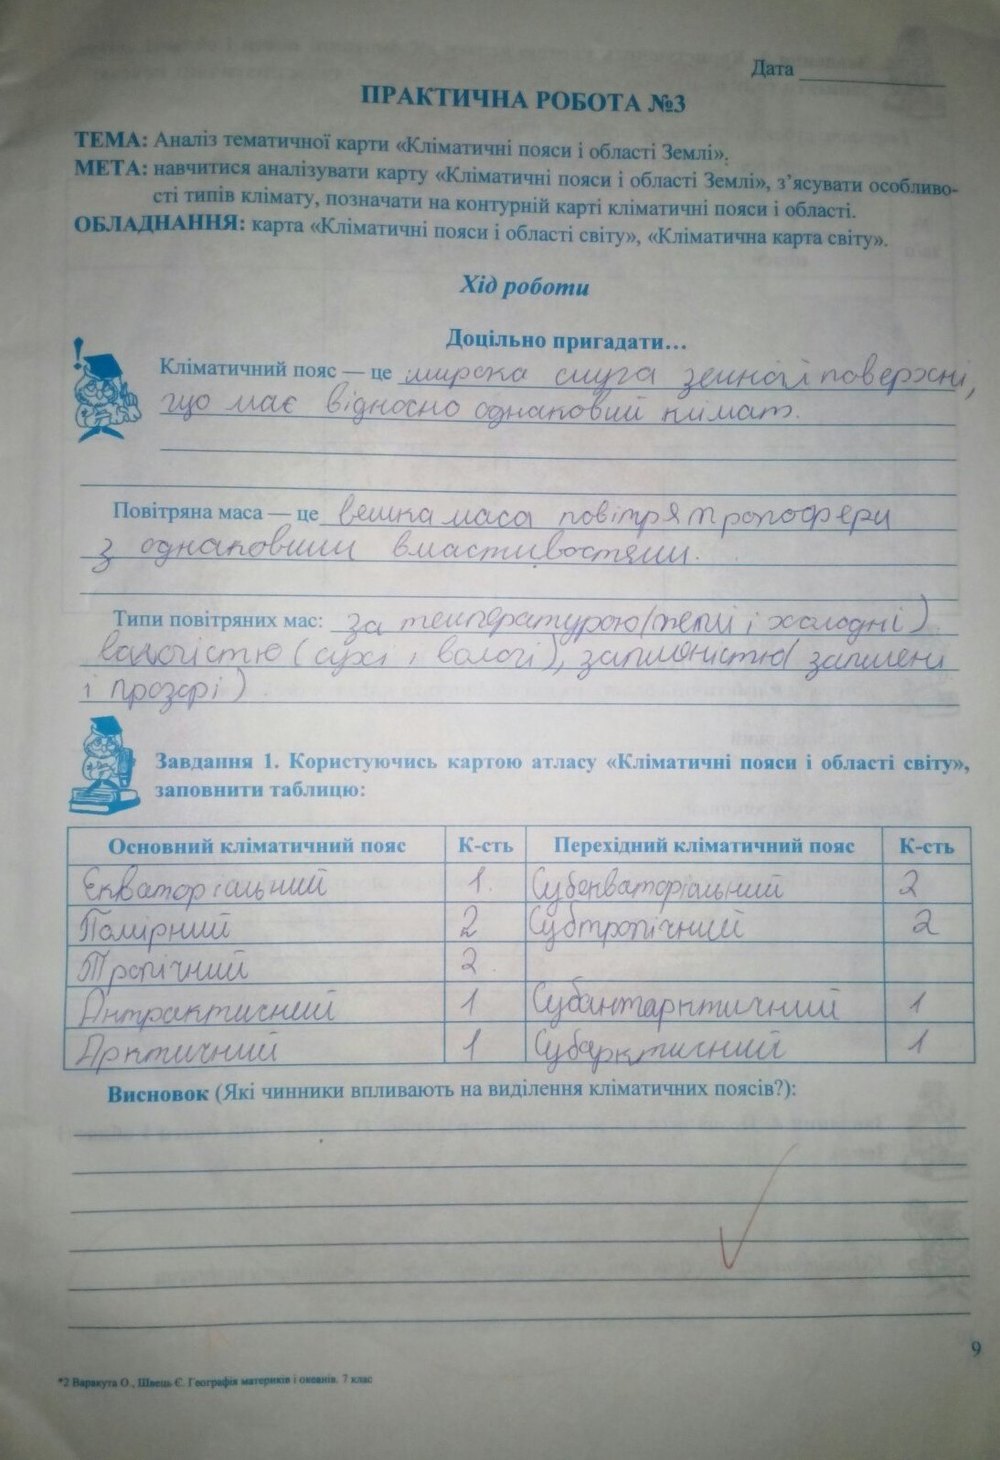 Дата
ПРАКТИЧНА РОБОТА №3
ТЕМА: Аналіз тематичної карти «Кліматичні пояси і області Землі».
МЕТА: навчитися аналізувати карту «Кліматичні пояси і області Землі», з’ясувати особливо-
сті типів клімату, позначати на контурній карті кліматичні пояси і області.
ОБЛАДНАННЯ: карта «Кліматичні пояси і області світу», «Кліматична карта світу».
Хід роботи
Доцільно пригадати…
Кліматичний пояс — це широка смуга земної поверхні,
що має відносно однаковий клімат.
Повітряна маса — це велика маса повітря тропосфери
з однаковими властивостями.
Типи повітряних мас: за температурою (теплі і холодні)
вологістю (сухі і вологі), запиленістю (запилені
і прозорі)
Завдання 1. Користуючись картою атласу «Кліматичні пояси і області світу»,
заповнити таблицю:
Основний кліматичний пояс К-сть Перехідний кліматичний пояс К-сть
Екваторіальний 1. Субекваторіальний 2
Помірний 2 Субтропічний 2
Тропічний 2
Антрактичний 1 Субантарктичний 1
Арктичний 1 Субарктичний 1
Висновок (Які чинники впливають на виділення кліматичних поясів?):
9
*2 Варакута О., Швець Є. Географія материків і океанів. 7 клас